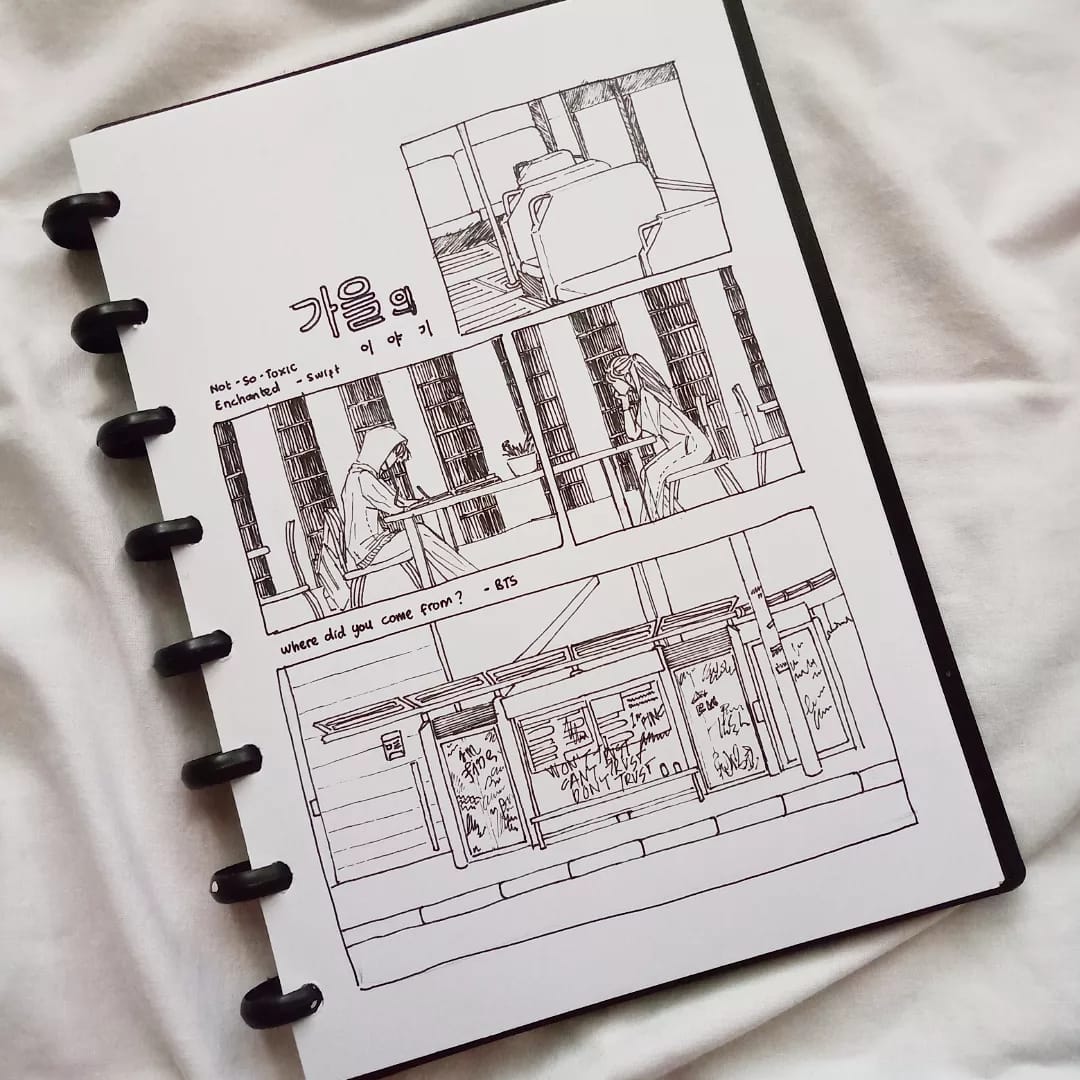 가을의
이야기
Not-So-Toxic
Enchanted - Swift
where did you come from? - BTS
I'm
FINE
I'm
FINE
WON'T TRUST
CAN'T TRUST
DON'T TRUST